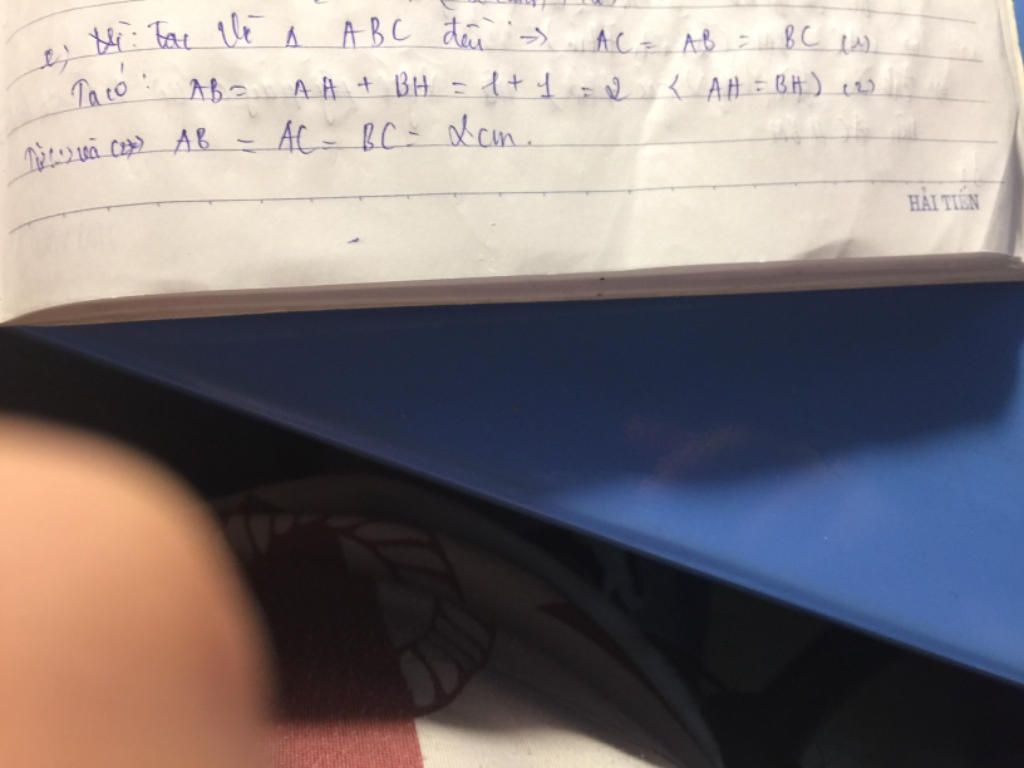 e, Vì Δ ABC đều => AC = AB = BC (1)
Ta có: AB = AH + BH = 1 + 1 = 2 ( AH = BH) (2)
Từ (1) và (2) => AB = AC = BC = 2 cm.
HẢI TIẾN